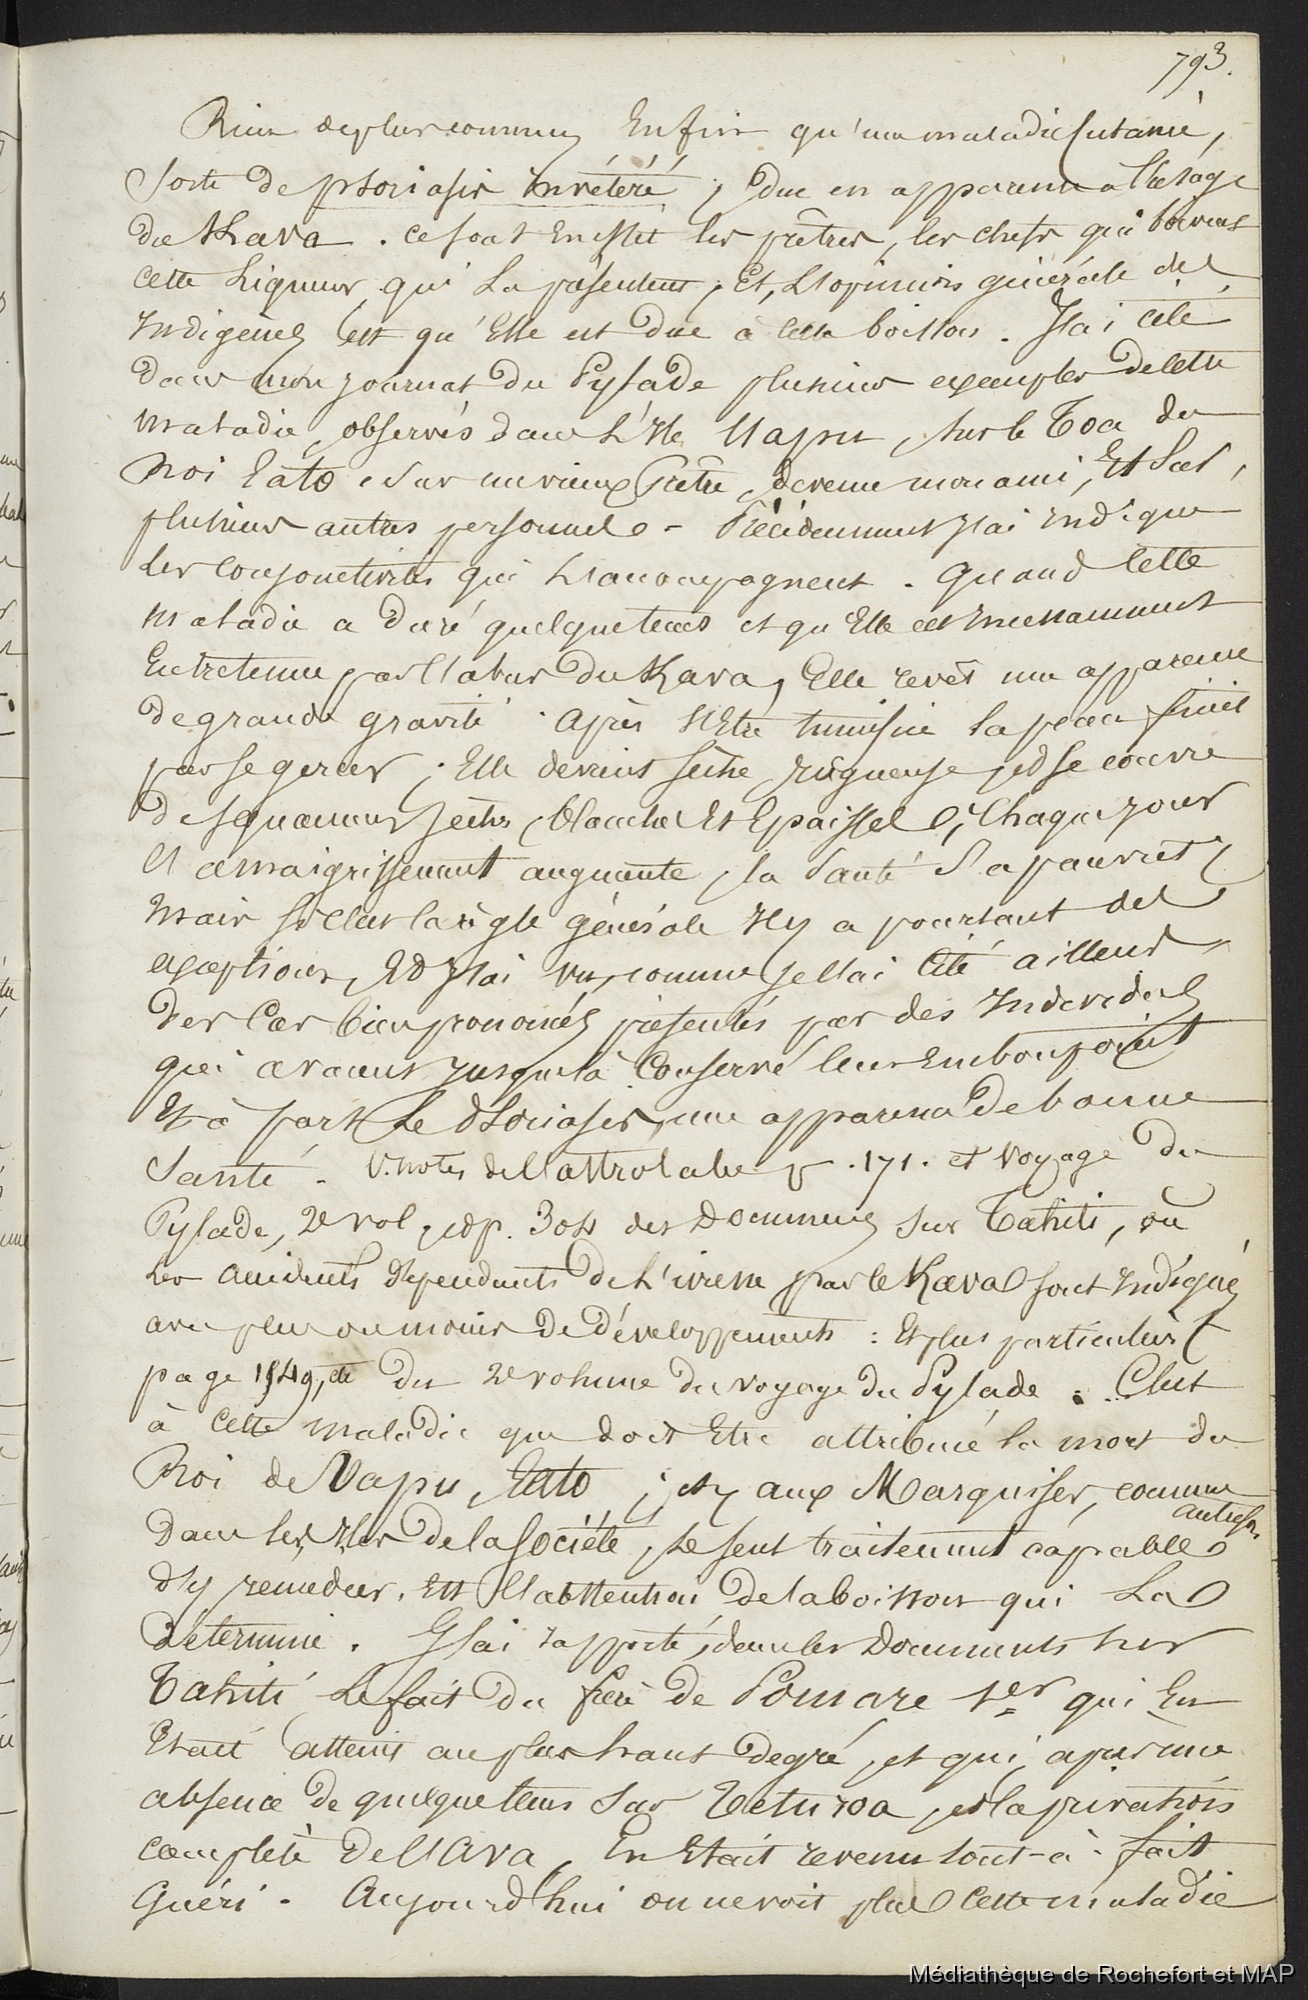 793.
Rien de plus commun Enfin qu'une maladie Cutanée,
Sorte de psoriasis invétéré, due en apparence à l'usage
du Kava. ce sont En effet les prêtres, les chefs qui boivent
cette Liqueur, qui La présentent; Et, L'opinion générale des
Indigènes Est qu'Elle est due à cette boisson. J'ai cité
dans mon journal du Pylade plusieurs exemples de cette
maladie, observés dans L'Ile Uapu, sur le Toa du
Roi Eato, sur un vieux Prêtre, devenu mon ami, Et sur
plusieurs autres personnes - Précédemment J'ai Indiqué
Les Conjonctivites qui L'accompagnent. Quand Cette
maladie a duré quelque tems et qu'Elle est Incessamment
Entretenue par l'abus du Kava, Elle revêt une apparence
de grande gravité. Après s'Etre tuméfiée la peau finit
par se gercer; Elle devient sèche, rugueuse, et se couvre
de squammes sèches, blanches Et Epaisses; Chaque jour
l'amaigrissement augmente, la Santé S'apauvrit;
Mais si c'est la règle générale Il y a pourtant des
exceptions, Et J'ai vu, comme je l'ai Cité ailleurs,
des Cas bien prononcés présentés par des Individus
qui avaient jusques là Conservé leur Embonpoint
Et à part Le Psoriasis, une apparence de bonne
Santé. V. notes de l'astrolabe p. 171. et Voyage du
Pylade, 2e vol, et p. 304 des Documens sur Tahiti, où
Les accidents dépendants de L'ivresse par le Kava sont Indiqués
avec plus ou moins de développements: Et plus particulièrt
page 1549, etc du 2e volume du voyage du Pylade. C'est
à Cette maladie que doit Etre attribuée la mort du
Roi de Uapu, Eato; et, aux Marquises, comme
autrefs.
Dans les Iles de la Société, Le seul traitement capable
d'y remédier, Est l'abstention de la boisson qui La
détermine. J'ai rapporté, dans les Documents sur
Tahiti Le fait du frère de Pomare 1er qui En
Etait atteint au plus haut degré, et qui, après une
absence de quelque tems sur Teturoa, et la privation
complète de l'Ava, En Etait revenu tout-à-fait
Guéri. Aujourd'hui on ne voit plus Cette maladie
Médiathèque de Rochefort et MAP